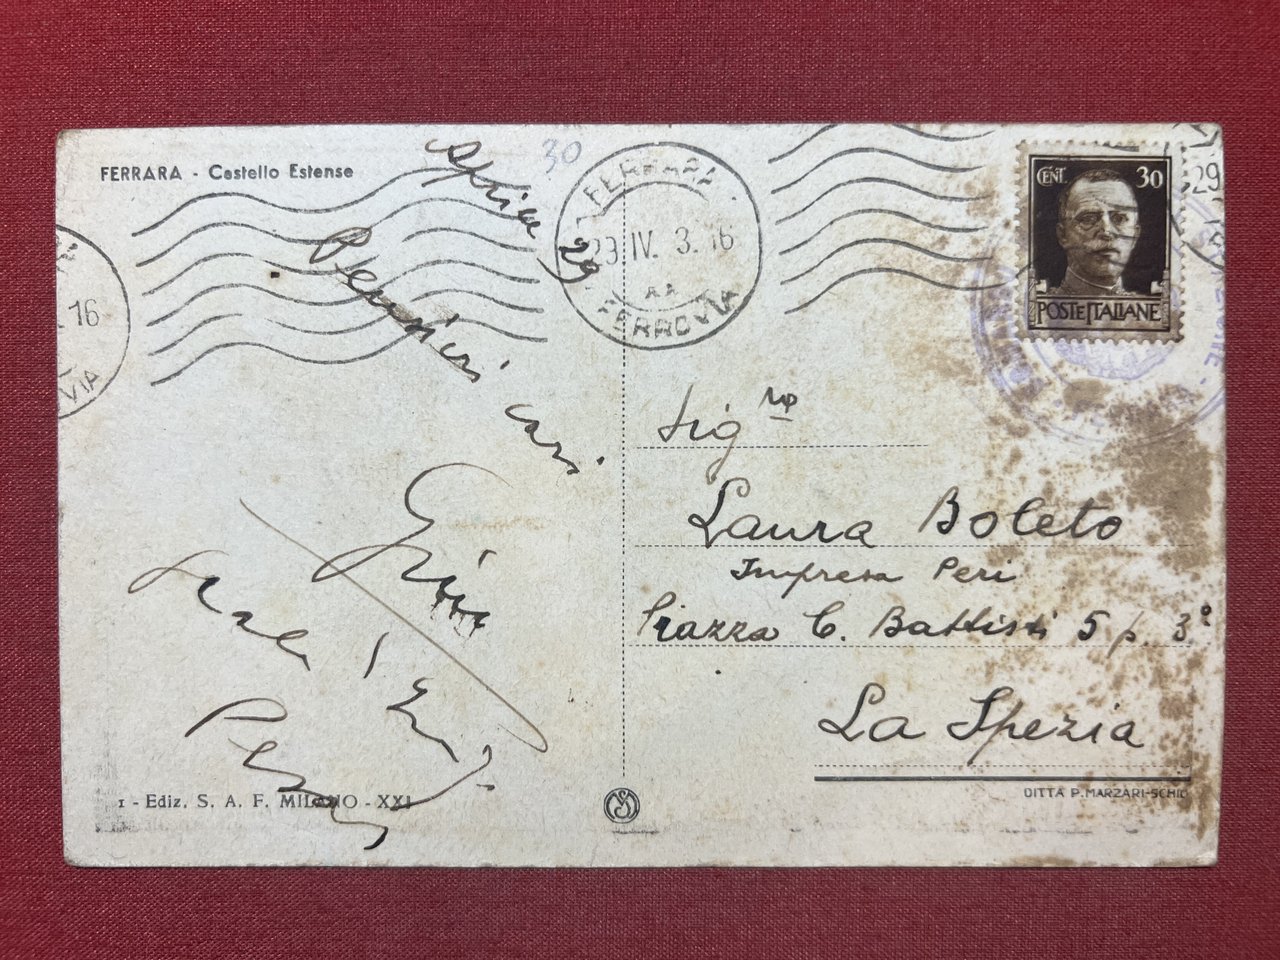 FERRARA - Castello Estense
30
Aprile 29
Pensieri cari
FERRARA
29 IV. 3. 16
FERROVIA
16
VIA
29
CENT. 30
POSTE ITALIANE
Sig na
Laura Boleto
Impresa Peri
Piazza C. Battisti 5 p. 3º
La Spezia
1 - Ediz. S. A. F. MILANO - XXI
DITTA P. MARZARI-SCHIO